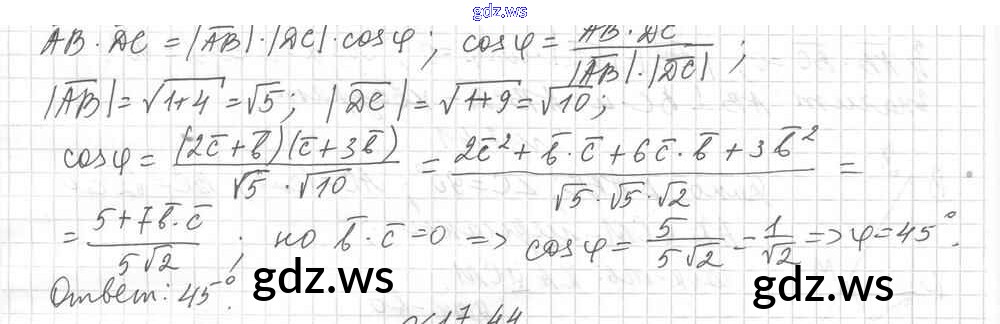 gdz.ws
AB · DC = |AB| · |DC| · cos φ ; cos φ = AB · DC / |AB| · |DC| ;
|AB| = √1+4 = √5 ; |DC| = √1+9 = √10 ;
cos φ = (2c̄ + b̄)(c̄ + 3b̄) / √5 · √10 = 2c̄² + b̄ · c̄ + 6c̄ · b̄ + 3b̄² / √5 · √5 · √2 =
= 5 + 7b̄ · c̄ / 5√2 ; но b̄ · c̄ = 0 => cos φ = 5 / 5√2 = 1 / √2 => φ = 45°.
Ответ: 45°.
gdz.ws
gdz.ws
17.44